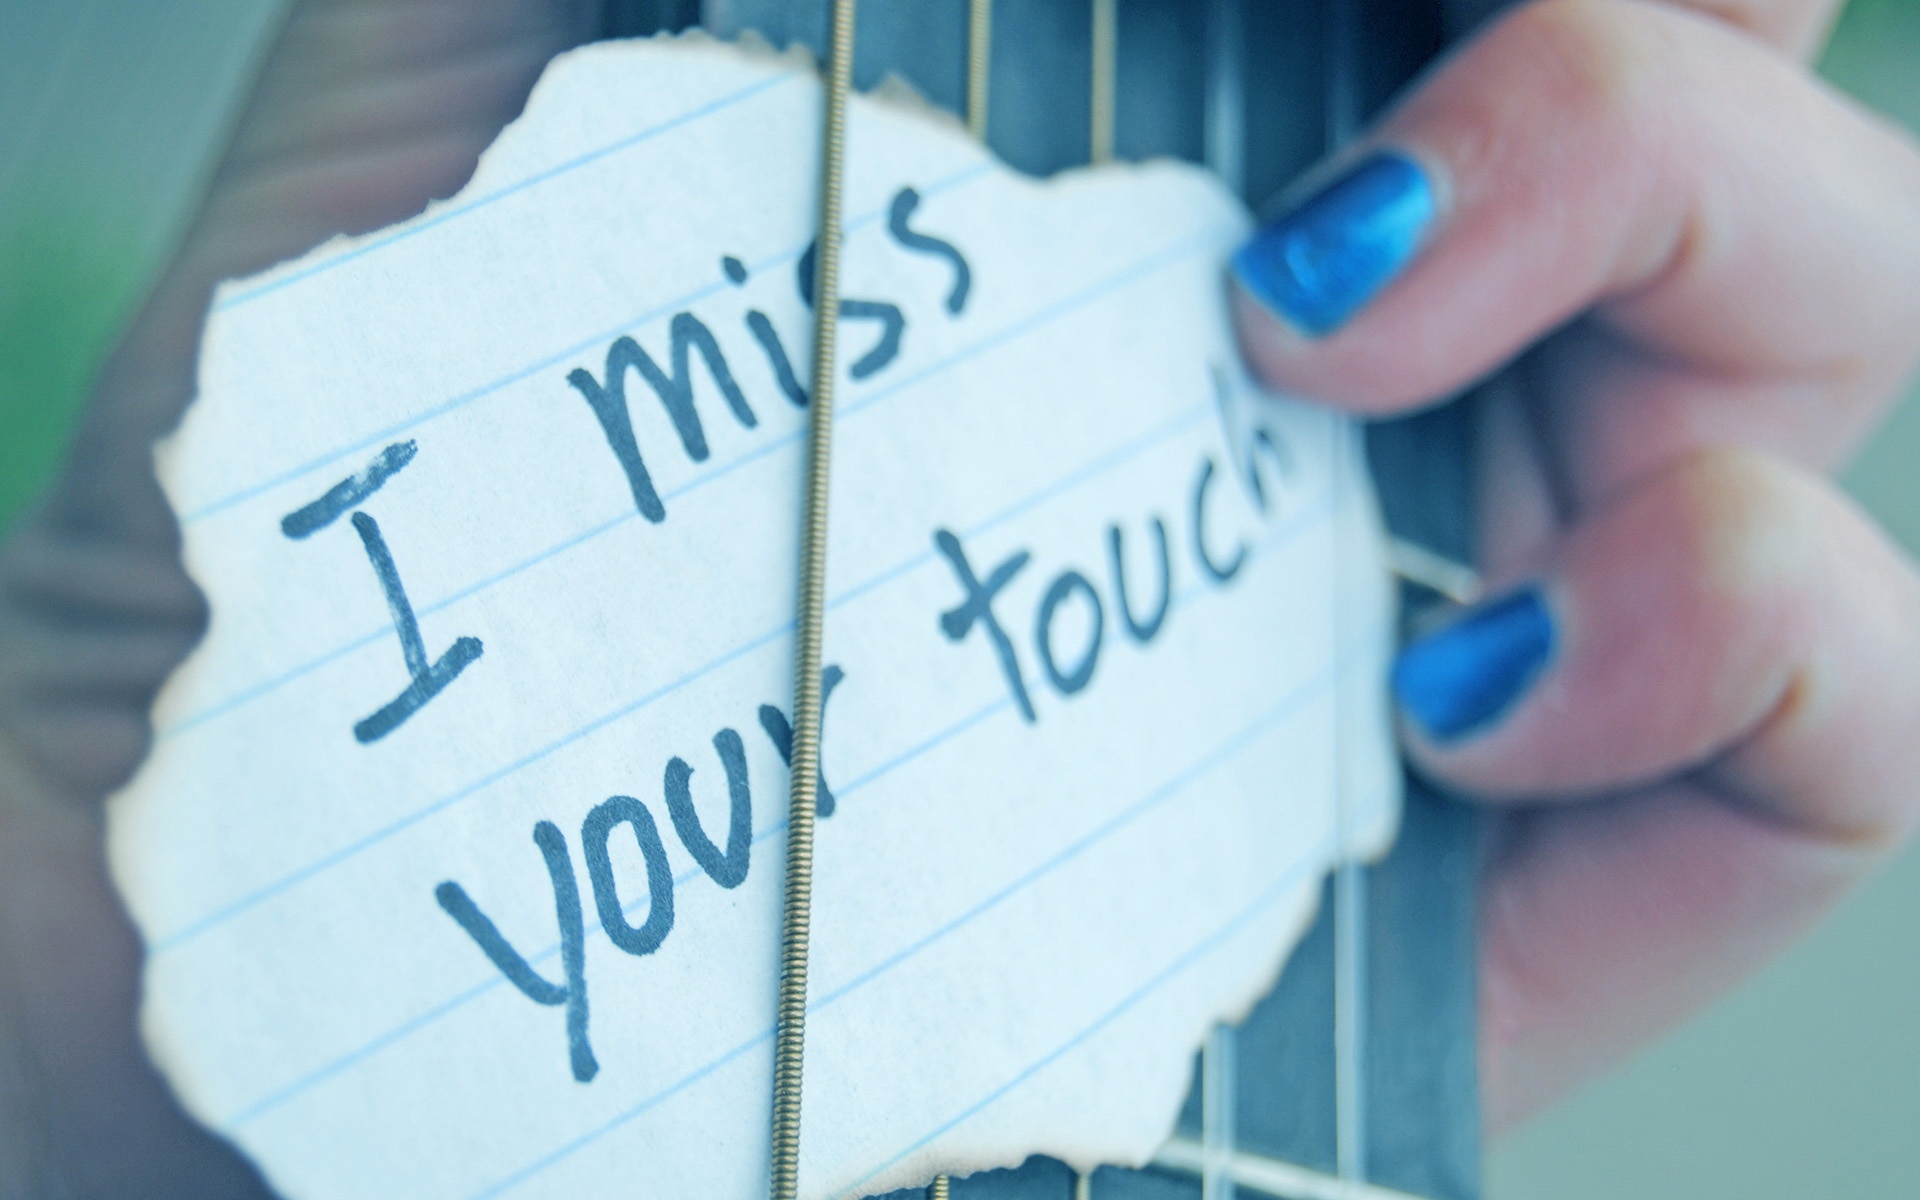 I miss
your touch